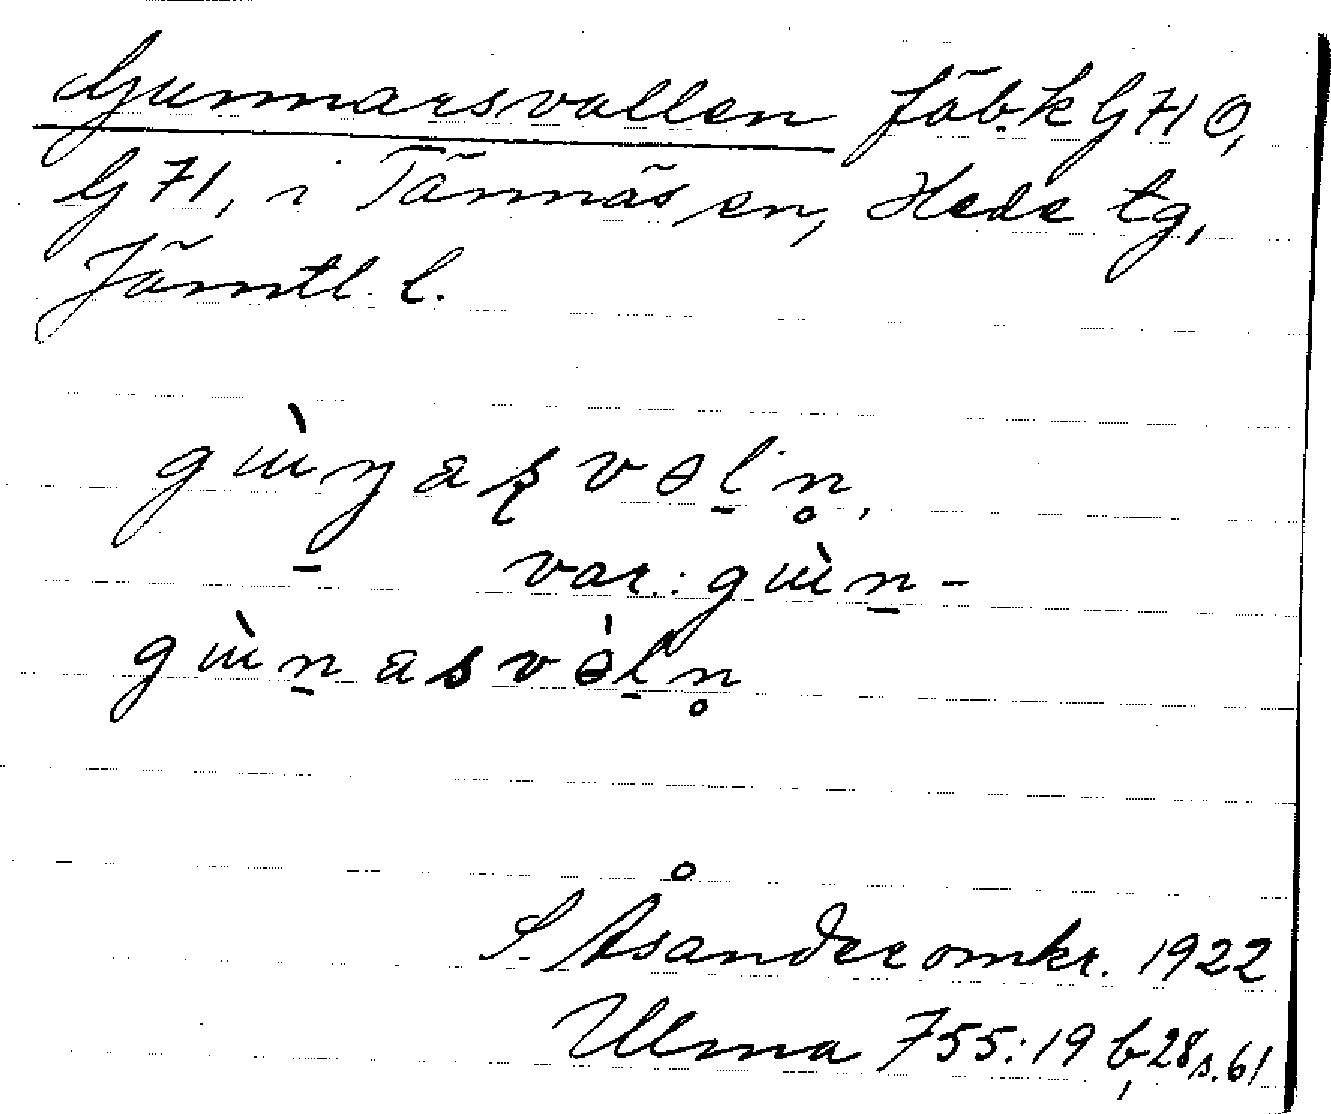 Gunnarsvallen fäb. k G 71 Ö,
G 71, i Tännäs sn, Hede tg,
Jämtl. l.
gɯ̀n̠aʂvɵl̠n̥,
var.: gɯ̀n̠-
gɯ̀n̠asvɵ̀l̠n̥
S. Åsander omkr. 1922
Ulma 755:19 b, 28 s. 61